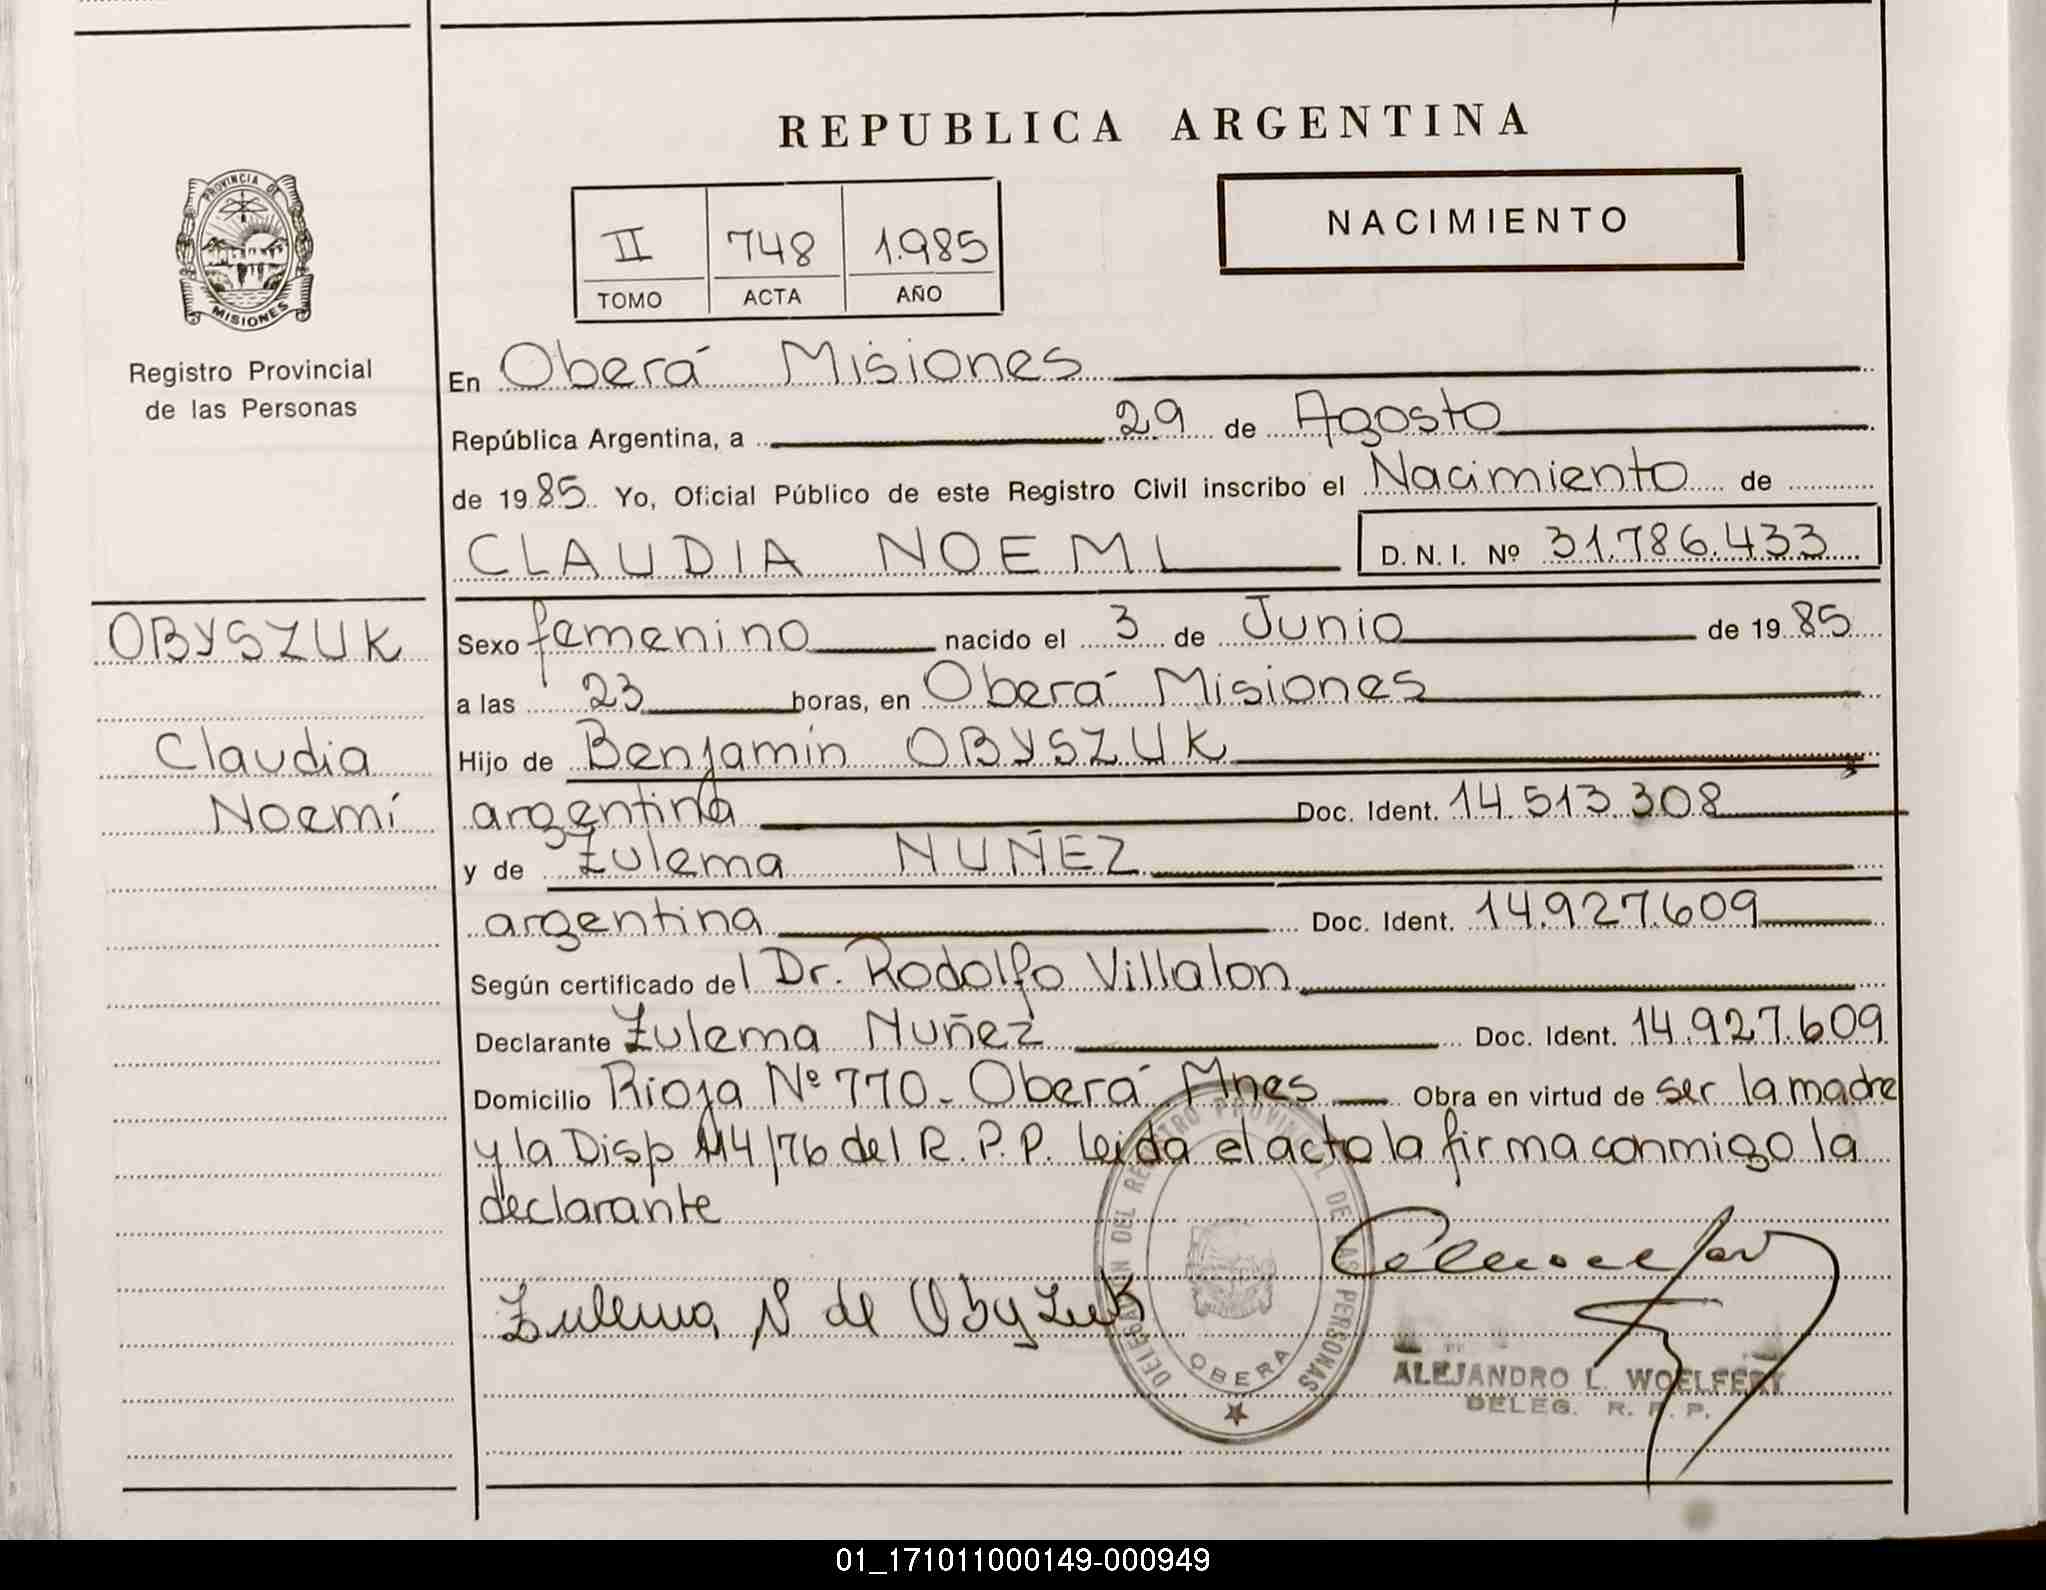 REPUBLICA ARGENTINA
PROVINCIA DE
MISIONES
Registro Provincial
de las Personas
II 748 1.985
TOMO ACTA AÑO
NACIMIENTO
En Oberá Misiones
República Argentina, a 29 de Agosto
de 1985. Yo, Oficial Público de este Registro Civil inscribo el Nacimiento de
CLAUDIA NOEMI D. N. I. Nº 31.786.433
OBYSZUK
Claudia
Noemí
Sexo femenino nacido el 3 de Junio de 1985
a las 23 horas, en Oberá Misiones
Hijo de Benjamín OBYSZUK
argentina Doc. Ident. 14.513.308
y de Zulema NUÑEZ
argentina Doc. Ident. 14.927.609
Según certificado del Dr. Rodolfo Villalon
Declarante Zulema Nuñez Doc. Ident. 14.927.609
Domicilio Rioja Nº 770- Oberá Mnes Obra en virtud de ser la madre
y la Disp 114/76 del R. P. P. Leida el acto la firma conmigo la
declarante
Zulema N de Obyzuk
DELEGACIÓN DEL REGISTRO PROVINCIAL DE LAS PERSONAS
OBERA
ALEJANDRO L. WOELFERT
DELEG. R. P. P.
01_171011000149-000949